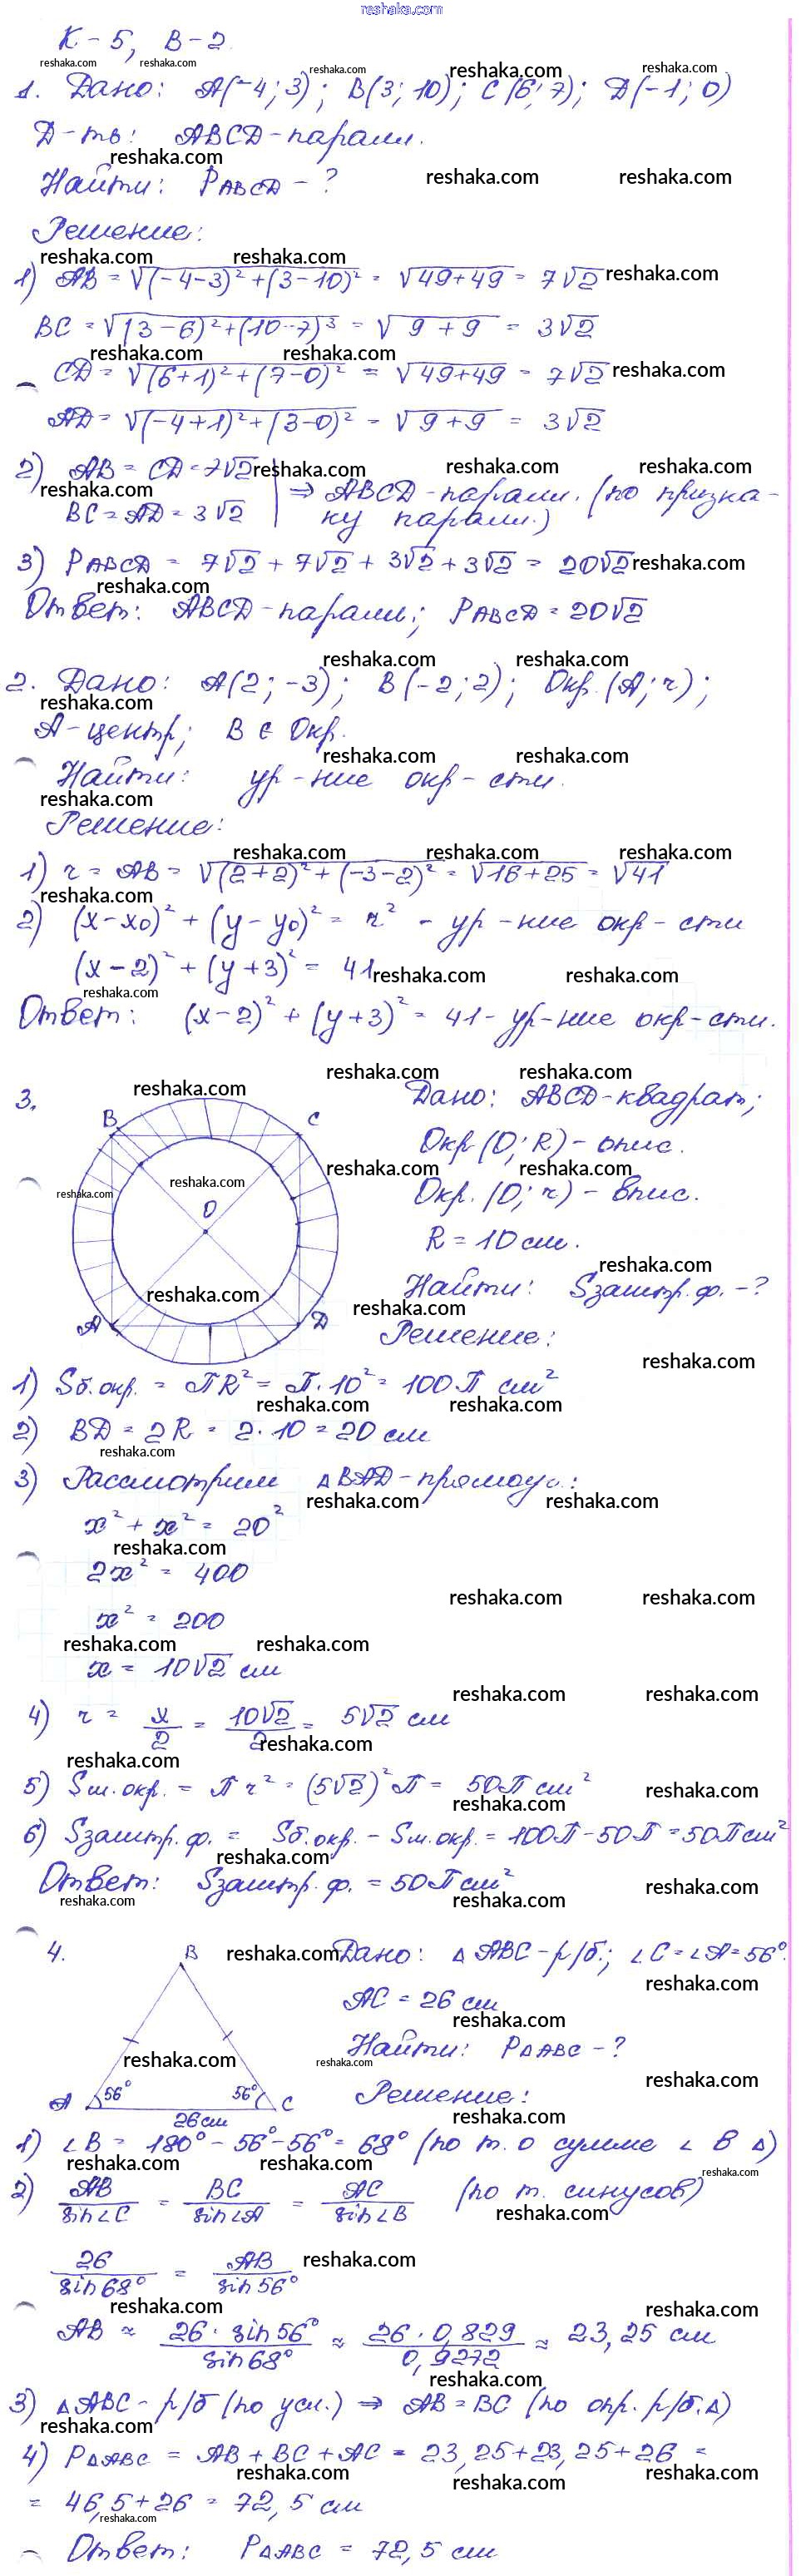 reshaka.com
К-5, В-2.
1. Дано: A(-4; 3); B(3; 10); C(6; 7); D(-1; 0)
Д-ть: ABCD-паралл.
Найти: PABCD - ?
Решение:
1) AB = √(-4-3)² + (3-10)² = √49+49 = 7√2
BC = √(3-6)²+(10-7)³ = √9+9 = 3√2
CD = √(6+1)² + (7-0)² = √49+49 = 7√2
AD = √(-4+1)² + (3-0)² = √9+9 = 3√2
2) AB = CD = 7√2
BC = AD = 3√2 | ⇒ ABCD-паралл. (по призна-
ку паралл.)
3) PABCD = 7√2 + 7√2 + 3√2 + 3√2 = 20√2
Ответ: ABCD-паралл; PABCD = 20√2
2. Дано: A(2; -3); B(-2; 2); Окр. (A; r);
A-центр; B ∈ Окр.
Найти: ур-ние окр-сти.
Решение:
1) r = AB = √(2+2)² + (-3-2)² = √16+25 = √41
2) (x-x₀)² + (y-y₀)² = r² - ур-ние окр-сти
(x-2)² + (y+3)² = 41
Ответ: (x-2)² + (y+3)² = 41- ур-ние окр-сти.
3.
B C
O
A D
Дано: ABCD-квадрат;
Окр (O; R) - опис.
Окр. (O; r) - впис.
R = 10 см.
Найти: Sзаштр. ф. - ?
Решение:
1) Sб.окр. = πR² = π·10² = 100π см²
2) BD = 2R = 2·10 = 20 см
3) Рассмотрим △BAD-прямоуг.:
x² + x² = 20²
2x² = 400
x² = 200
x = 10√2 см
4) r = x/2 = 10√2/2 = 5√2 см
5) Sм.окр. = πr² = (5√2)²π = 50π см²
6) Sзаштр. ф. = Sб.окр. - Sм.окр. = 100π-50π = 50π см²
Ответ: Sзаштр. ф. = 50π см²
4.
B
A 56° 56° C
26 см
Дано: △ABC-р/б; ∠C = ∠A = 56°.
AC = 26 см
Найти: P△ABC - ?
Решение:
1) ∠B = 180° - 56° - 56° = 68° (по т. о сумме ∠ в △)
2) AB/sin∠C = BC/sin∠A = AC/sin∠B (по т. синусов)
26/sin68° = AB/sin56°
AB ≈ 26·sin56°/sin68° ≈ 26·0,829/0,9272 ≈ 23,25 см
3) △ABC- р/б (по усл.) ⇒ AB = BC (по опр. р/б.△)
4) P△ABC = AB + BC + AC = 23,25+23,25+26 =
= 46,5+26 = 72,5 см
Ответ: P△ABC = 72,5 см